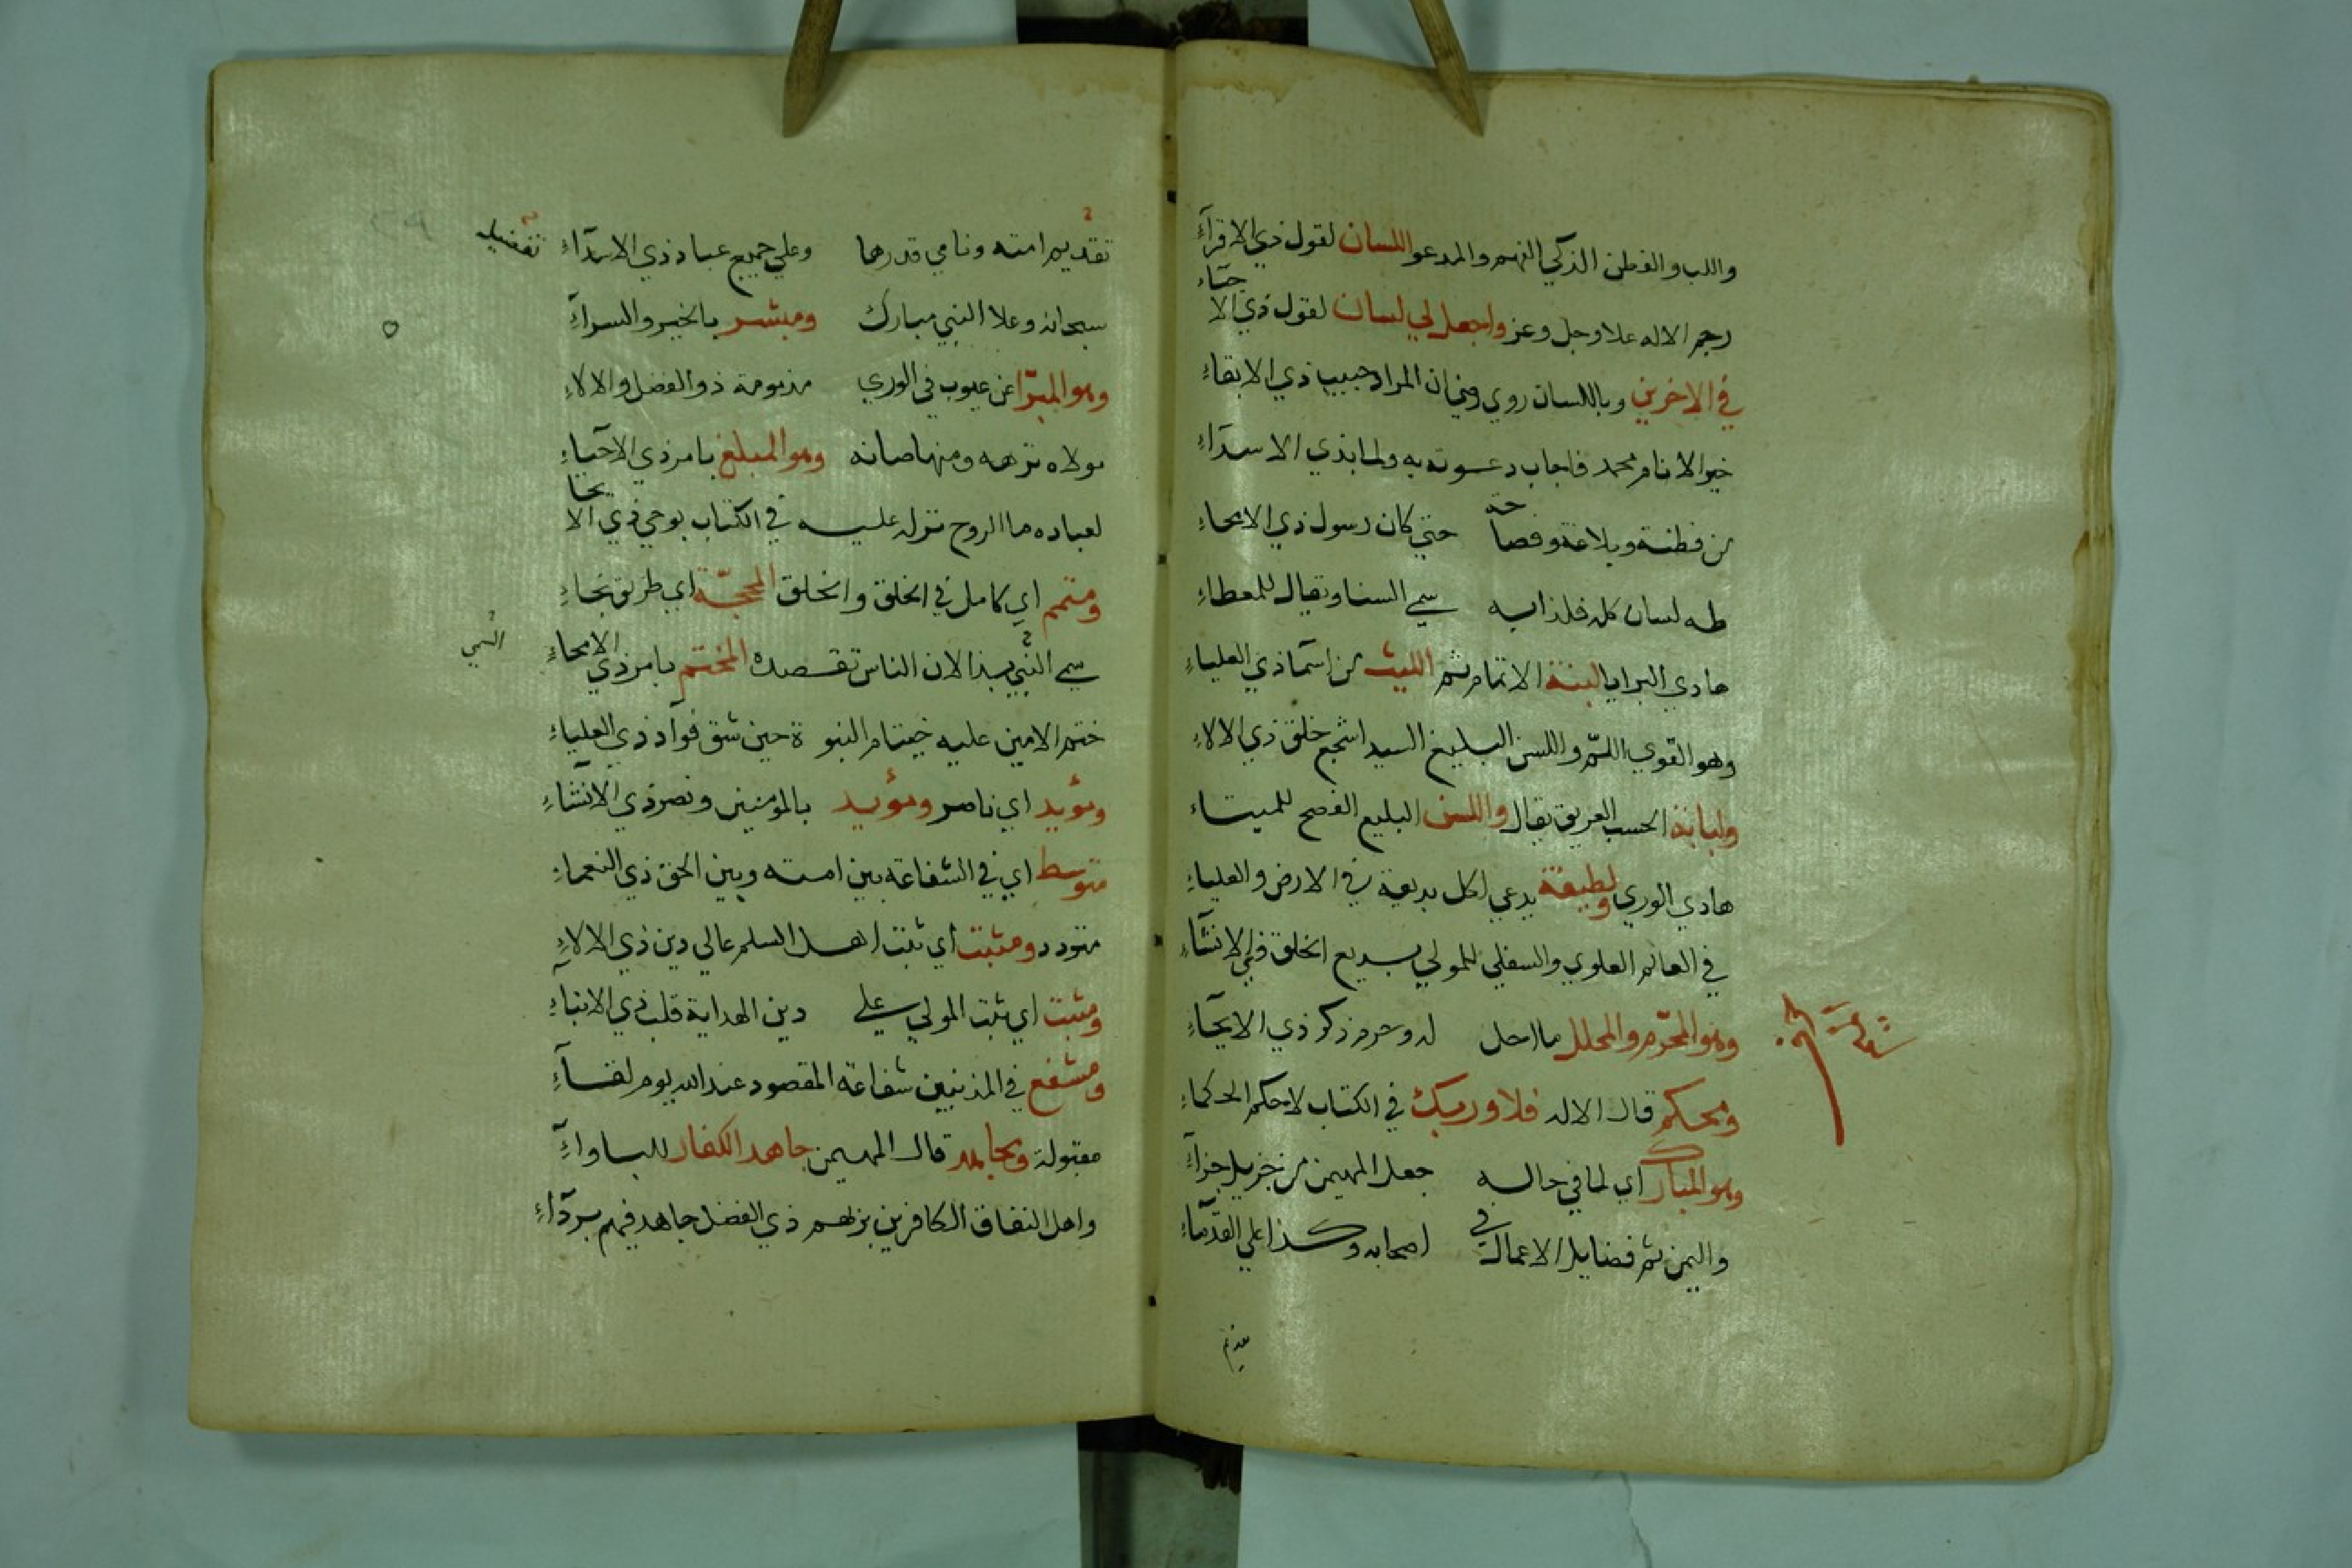 واللب والفطن الذكي الفهم والمدعو اللسان لقول ذي الاقرآء
رحم الاله علا وجل وعز واجعل لي لسان لقول ذي الا حيآء
في الاخرين وباللسان روي وفي ان المراد حبيب ذي الابقاء
خير الانام محمد فاجاب دعوته به ولما بذي الاسدآء
من فطنة وبلاغة وفصا حة حتي كان رسول ذي الايحاء
طه لسان كله فلذا به سمي السنا ويقال للمعطاء
هادي البرايا لبنة الاتمام ثم الليث من اسما ذي العلياء
وهو القوي اللسن واللسن البليغ السيد اشجع خلق ذي الالاء
ولبانة الحسب العريق يقال واللسن البليغ الفصح للميتاء
هادي الوري ولطيفة يدعي لكل بديعة في الارض والعلياء
في العالم العلوي والسفلي للمولي بديع الخلق في الانشآء
حرف الميم
وهو المحرّم والمحلل ما احل له وحرم ذكر ذي الايحآء
ومحكم قال الاله فلا وربك في الكتاب لا محكم الحكماء
وهو المبارك اي لما في حاله جعل المهيمن من جزيل جزآء
واليمن ثم فضايل الاعمال في اصحابه وكذا علي القدمآء
تقديم
تقديم امته ونامي قدرها وعلي جميع عباد ذي الاسدآء
تفضيله
سبحانه وعلا النبي مبارك ومبشر بالخير والسرآء
وهو المبرّا عن عيوب في الوري مذمومة ذو الفضل والالاء
مولاه نزهه ومنها صانه وهو المبلغ بامر ذي الاحياء
لعباده ما الروح نزله عليه في الكتاب بوحي ذي الا يحا
ومتمم اي كامل في الخلق والخلق المحجّة اي طريق نجاء
سمي النبي بذا لان الناس تقصده المختم بامر ذي الايحاء
النبي
ختم الامين عليه خيتام النبو ة حين شق فؤاد ذي العلياء
ومؤيد اي ناصر ومؤيد بالمؤمنين ونصر ذي الانشاء
متوسط اي في الشفاعة بين امته وبين الحق ذي النعماء
متودد ومثبت اي ثبت اهل السلم عالي دين ذي الالاء
ومثبت اي ثبت المولي علي دين الهداية قلب ذي الانباء
ومشفع في المذنبين شفاعة المقصود عند الله يوم لقآء
مقبولة ومجاهد قال المهيمن جاهد الكفار للباوآء
واهل النفاق الكافرين بزلهم ذي الفضل جاهد فيهم بردآء